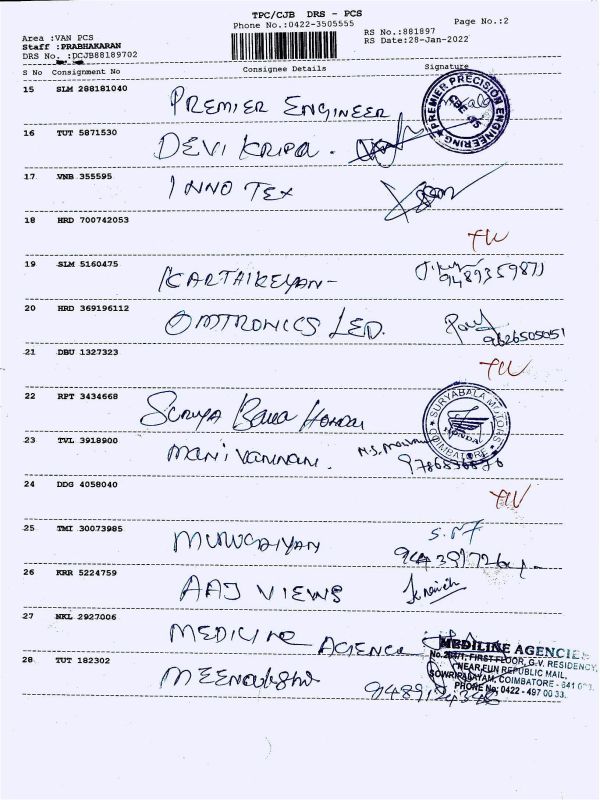 TPC/CJB DRS - PCS
Phone No.:0422-3505555 Page No.:2
Area :VAN PCS RS No.:881897
Staff :PRABHAKARAN RS Date:28-Jan-2022
DRS No. :DCJB88189702
S No Consignment No Consignee Details Signature
15 SLM 288181040 PREMIER ENGINEER PREMIER PRECISION ENGINEERING
16 TUT 5871530 DEVI KRIPA.
17 VNB 355595 INNO TEX
18 HRD 700742053
19 SLM 5160475 KARTHIKEYAN- 9489359871
20 HRD 369196112 OMTRONICS LED. 9626505051
21 DBU 1327323
22 RPT 3434668 Surya Bala Hondai SURYABALA MOTORS HONDA COIMBATORE
23 TVL 3918900 manivannan.
24 DDG 4058040
25 TMI 30073985 MURUGAIYAN
26 KRR 5224759 AAJ VIEWS
27 NKL 2927006 MEDICINE AGIENCE
MEDILINE AGENCIES
FIRST FLOOR, G.V. RESIDENCY,
NEAR FUN REPUBLIC MAIL,
SOWRIPALAYAM, COIMBATORE - 641
PHONE No: 0422 - 497 00 33.
28 TUT 182302